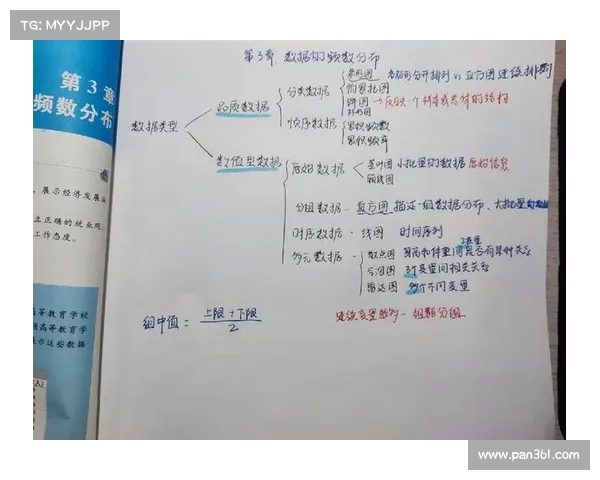 TG: MYYJJPP
第3章
频数分布
展示经济发展成
立正确的就业观
工作态度。
高等教育学校
通高等教育学
示这些数据
第3章 数据的频数分布
数据类型
品质数据
分类数据
条形图 各矩形分开排列 vs 直方图连续排列
帕累托图
饼图 → 反映一个样本或总体的结构
环形图
顺序数据
累积频数
累积频率
数值型数据
原始数据
茎叶图 小批量的数据 原始信息
箱线图
分组数据 - 直方图 描述一组数据分布、大批量
时序数据 - 线图 时间序列
多元数据
散点图 两变量间是否有某种关系
2变量
气泡图 3个变量间相关关系
雷达图 多个不同变量
组中值 = 上限 + 下限
2
连续变量 - 组距分组.
www.pan361.com